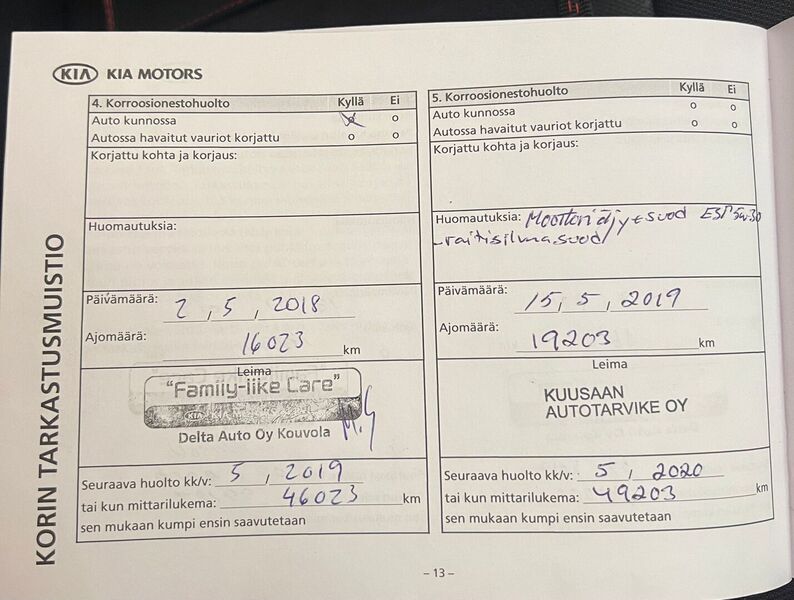 KIA KIA MOTORS
KORIN TARKASTUSMUISTIO
4. Korroosionestohuolto Kyllä Ei
Auto kunnossa o o
Autossa havaitut vauriot korjattu o o
Korjattu kohta ja korjaus:
Huomautuksia:
Päivämäärä: 2, 5, 2018
Ajomäärä: 16023 km
Leima
"Family-like Care"
KIA
Delta Auto Oy Kouvola
Seuraava huolto kk/v: 5, 2019
tai kun mittarilukema: 46023 km
sen mukaan kumpi ensin saavutetaan
5. Korroosionestohuolto Kyllä Ei
Auto kunnossa o o
Autossa havaitut vauriot korjattu o o
Korjattu kohta ja korjaus:
Huomautuksia: Moottoriöljy+suod ESP 5w.30
-raitisilma.suod
Päivämäärä: 15, 5, 2019
Ajomäärä: 19203 km
Leima
KUUSAAN
AUTOTARVIKE OY
Seuraava huolto kk/v: 5, 2020
tai kun mittarilukema: 49203 km
sen mukaan kumpi ensin saavutetaan
– 13 –